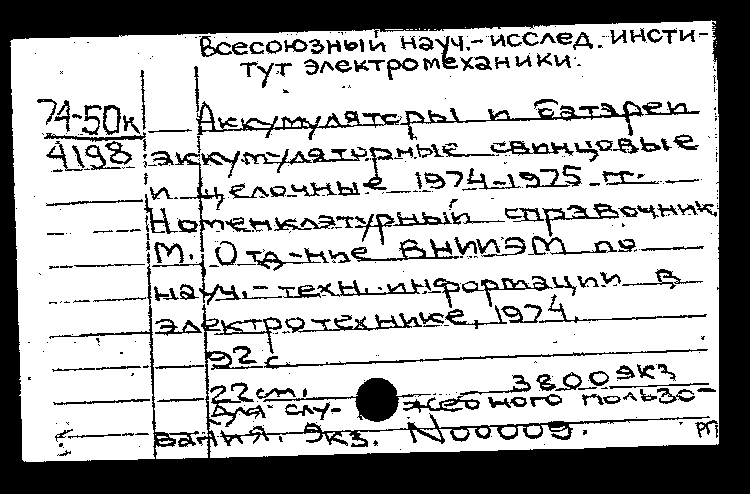 Всесоюзный науч.-исслед. инсти-
тут электромеханики.
74-50к
4198
Аккумуляторы и батареи
аккумуляторные свинцовые
и щелочные 1974-1975 гг.
Номенклатурный справочник.
М. Отд-ние ВНИИЭМ по
науч.-техн. информации в
электротехнике, 1974.
92 с
22 см. 3800 экз
Для слу- жебного пользо-
вания. Экз. №00009.
РП